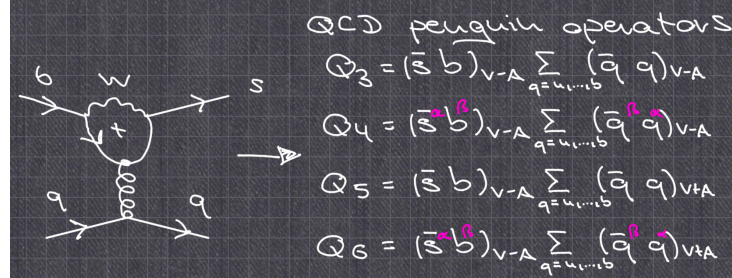 QCD penguin operators
b W s
t
q q
Q₃ = (s̄ b)_{V-A} Σ_{q=u,...,b} (q̄ q)_{V-A}
Q₄ = (s̄^α b^β)_{V-A} Σ_{q=u,...,b} (q̄^β q^α)_{V-A}
Q₅ = (s̄ b)_{V-A} Σ_{q=u,...,b} (q̄ q)_{V+A}
Q₆ = (s̄^α b^β)_{V-A} Σ_{q=u,...,b} (q̄^β q^α)_{V+A}